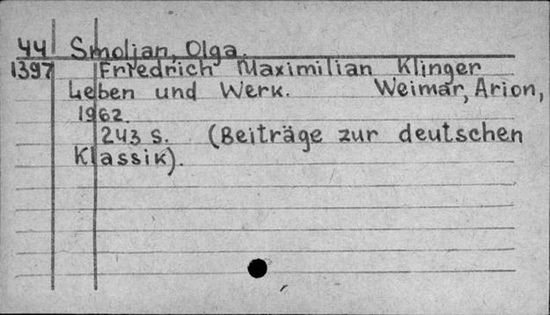 44 Smoljan, Olga.
1397 Friedrich Maximilian Klinger
Leben und Werk. Weimar, Arion,
1962.
243 S. (Beiträge zur deutschen
Klassik).